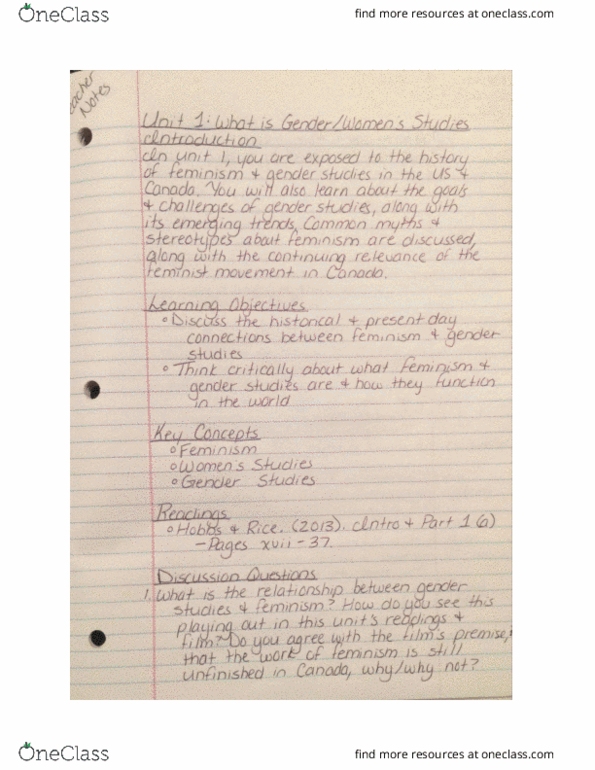 OneClass
find more resources at oneclass.com
Notes
Unit 1: What is Gender/Women's Studies
Introduction
In unit 1, you are exposed to the history
of feminism & gender studies in the US &
Canada. You will also learn about the goals
& challenges of gender studies, along with
its emerging trends, Common myths &
stereotypes about feminism are discussed,
along with the continuing relevance of the
feminist movement in Canada.
Learning Objectives
Discuss the historical & present day
connections between feminism & gender
studies
Think critically about what feminism &
gender studies are & how they function
in the world
Key Concepts
Feminism
Women's Studies
Gender Studies
Readings
Hobbs & Rice. (2013). Intro & Part 1 (a)
- Pages xvii - 37.
Discussion Questions
1. What is the relationship between gender
studies & feminism? How do you see this
playing out in this unit's readings &
film? Do you agree with the film's premise,
that the work of feminism is still
unfinished in Canada, why/why not?
OneClass
find more resources at oneclass.com